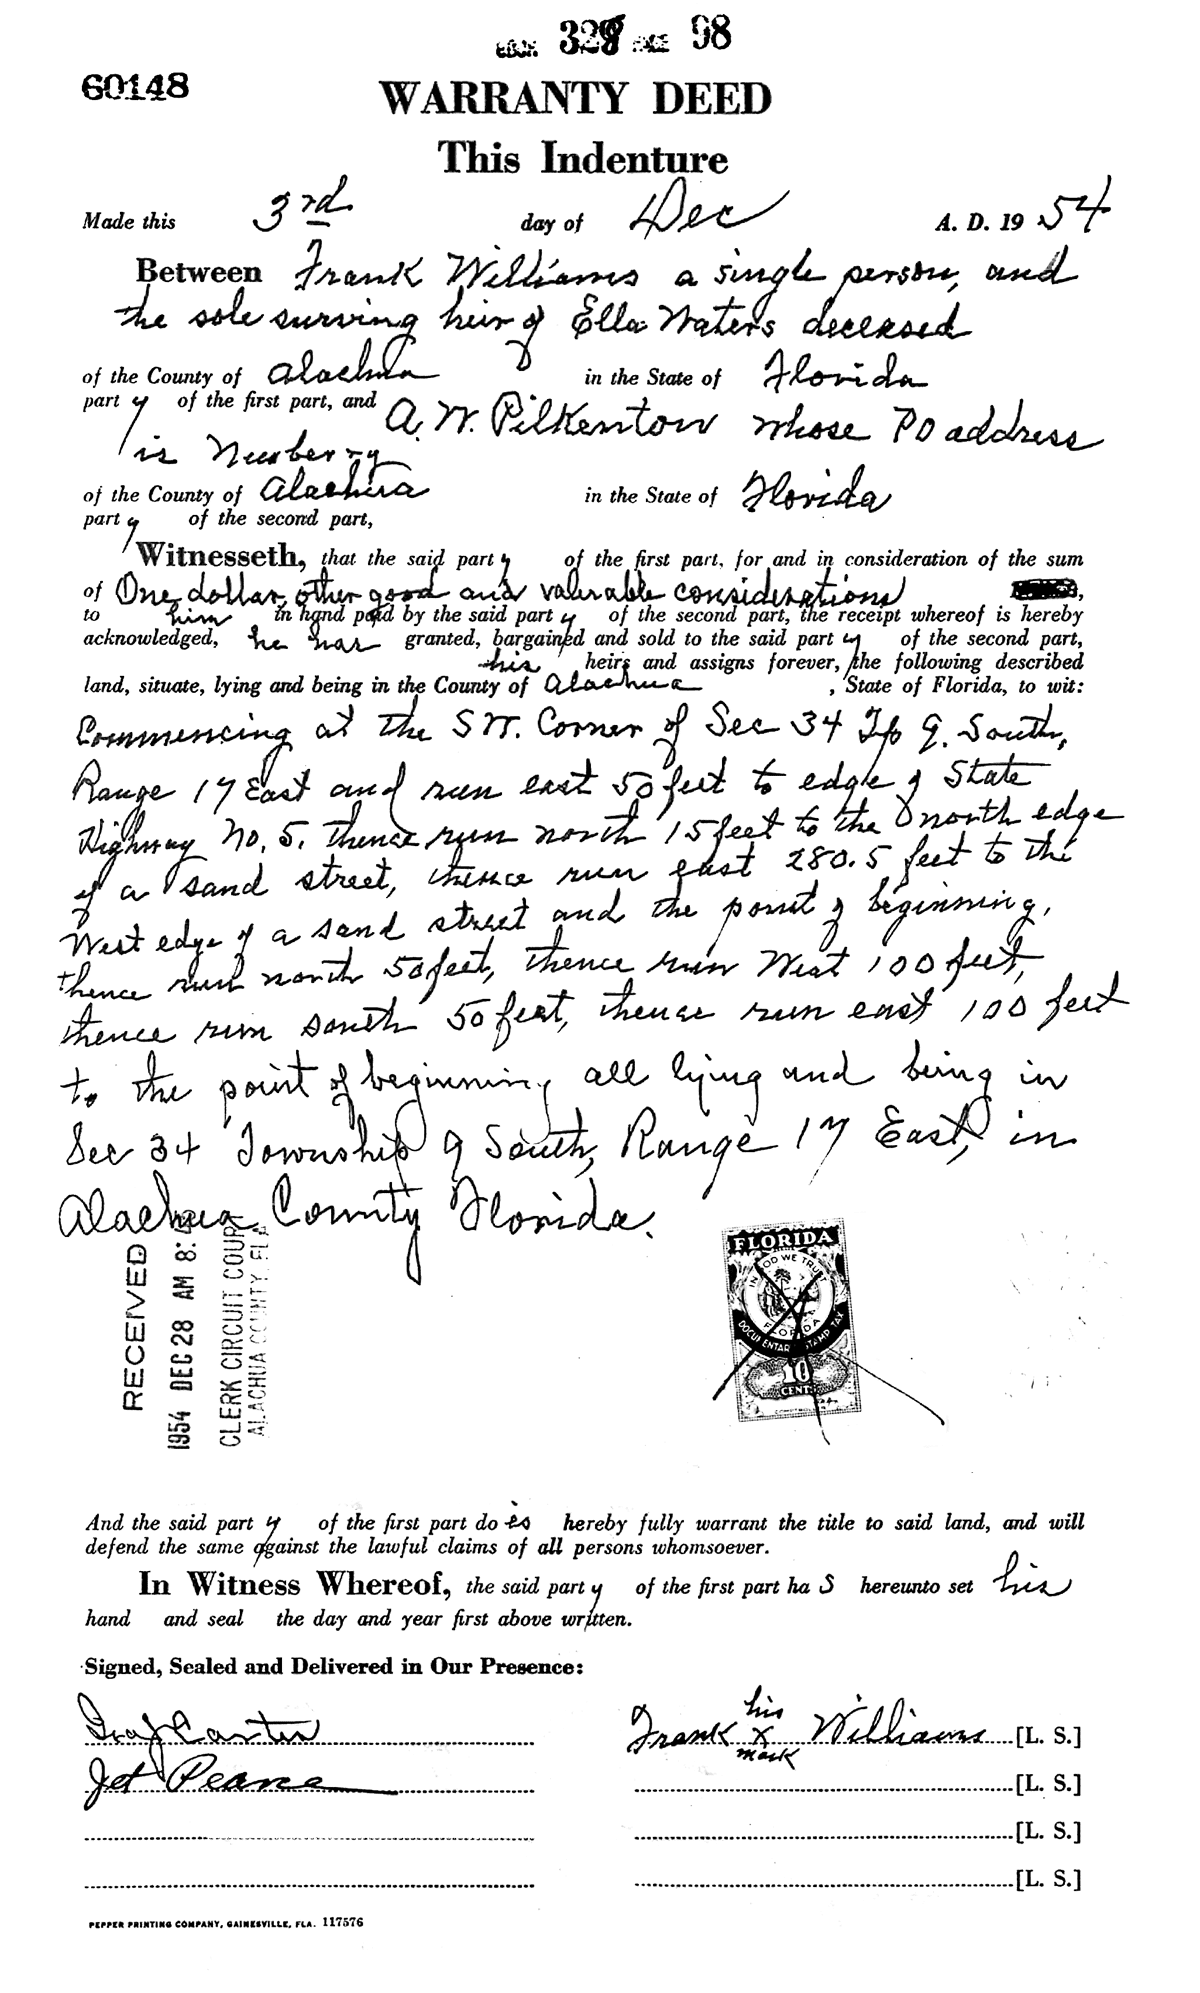 BOOK 328 PAGE 98
60148
WARRANTY DEED
This Indenture
Made this 3rd day of Dec A. D. 19 54
Between Frank Williams a single person, and
the sole surving heir of Ella Waters deceased
of the County of Alachua in the State of Florida
part y of the first part, and A. W. Pilkenton whose PO address
is Newberry
of the County of Alachua in the State of Florida
part y of the second part,
Witnesseth, that the said part y of the first part, for and in consideration of the sum
of One dollar, other good and valuable considerations ,
to him in hand paid by the said part y of the second part, the receipt whereof is hereby
acknowledged, he has granted, bargained and sold to the said part y of the second part,
his heirs and assigns forever, the following described
land, situate, lying and being in the County of Alachua , State of Florida, to wit:
Commencing at the SW. Corner of Sec 34 Tp 9. South,
Range 17 East and run east 50 feet to edge of State
Highway No. 5. thence run north 15 feet to the north edge
of a sand street, thence run east 280.5 feet to the
West edge of a sand street and the point of beginning,
thence run north 50 feet, thence run West 100 feet,
thence run south 50 feet, thence run east 100 feet
to the point of beginning all lying and being in
Sec 34 Township 9 South, Range 17 East, in
Alachua County Florida.
RECEIVED
1954 DEC 28 AM 8:
CLERK CIRCUIT COURT
ALACHUA COUNTY, FLA
FLORIDA
IN GOD WE TRUST
FLORIDA
DOCUMENTARY STAMP TAX
10
CENTS
And the said part y of the first part do es hereby fully warrant the title to said land, and will
defend the same against the lawful claims of all persons whomsoever.
In Witness Whereof, the said part y of the first part ha s hereunto set his
hand and seal the day and year first above written.
Signed, Sealed and Delivered in Our Presence:
Ira J Carter Frank his X mark Williams [L. S.]
Jet Pearce [L. S.]
[L. S.]
[L. S.]
PEPPER PRINTING COMPANY, GAINESVILLE, FLA. 117576